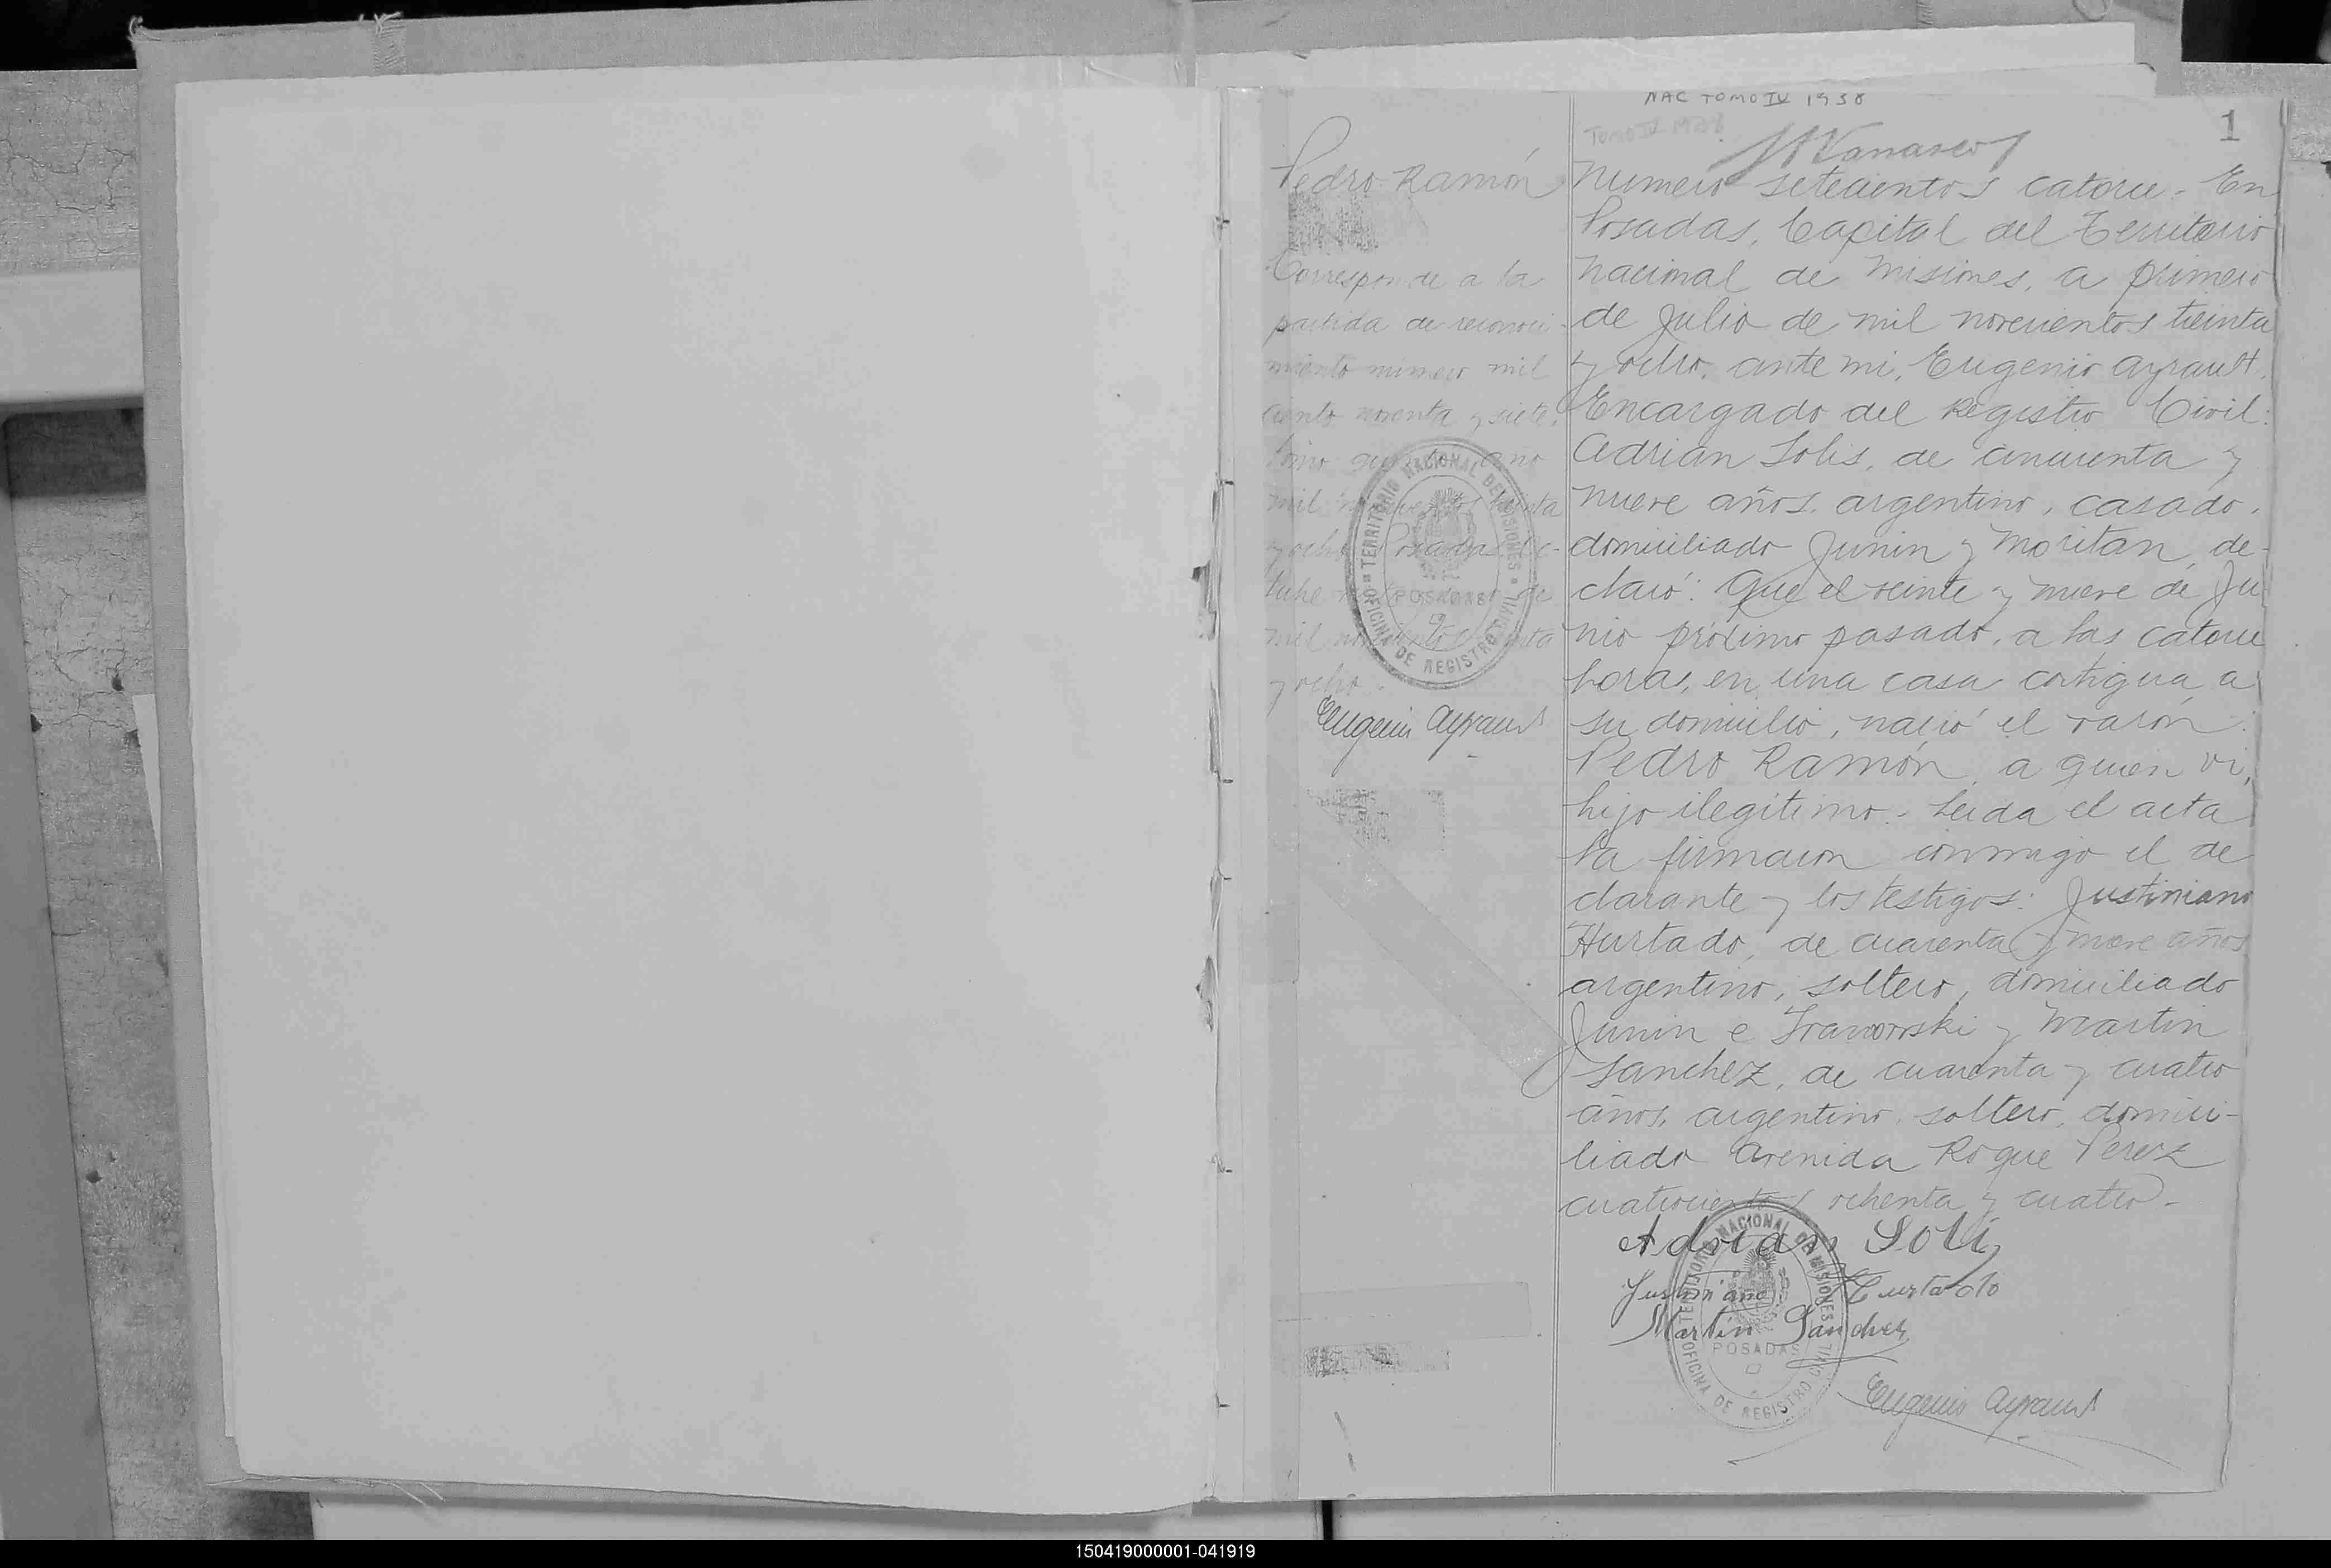 NAC TOMO IV 1938
TOMO IV 1938
1
Pedro Ramón
Corresponde a la
partida de reconoci-
miento número mil
ciento noventa y siete,
tomo año
mil novecientos treinta
y ocho Posadas, Oc-
tubre de
mil novecientos treinta
y ocho.
Eugenio Ayrault
TERRITORIO NACIONAL DE MISIONES
POSADAS
OFICINA DE REGISTRO CIVIL
Número setecientos catorce. En
Posadas, Capital del Territorio
Nacional de Misiones, a primero
de Julio de mil novecientos treinta
y ocho, ante mi, Eugenio Ayrault,
Encargado del Registro Civil:
Adrian Solis, de cincuenta y
nueve años, argentino, casado,
domiciliado Junin y Moritan, de-
claró: Que el veinte y nueve de Ju
nio próximo pasado, a las catorce
horas, en una casa contigua a
su domicilio, nació el varón:
Pedro Ramón, a quien vi,
hijo ilegítimo.- Leida el acta
la firmaron conmigo el de
clarante y los testigos: Justiniano
Hurtado, de cuarenta y nueve años
argentino, soltero, domiciliado
Junin e y Martin
Sanchez, de cuarenta y cuatro
años, argentino, soltero, domici-
liado Avenida Roque Perez
cuatrocientos ochenta y cuatro.-
Adrian Solis
Justiniano Hurtado
Martin Sanchez
TERRITORIO NACIONAL DE MISIONES
POSADAS
OFICINA DE REGISTRO CIVIL
Eugenio Ayrault
150419000001-041919